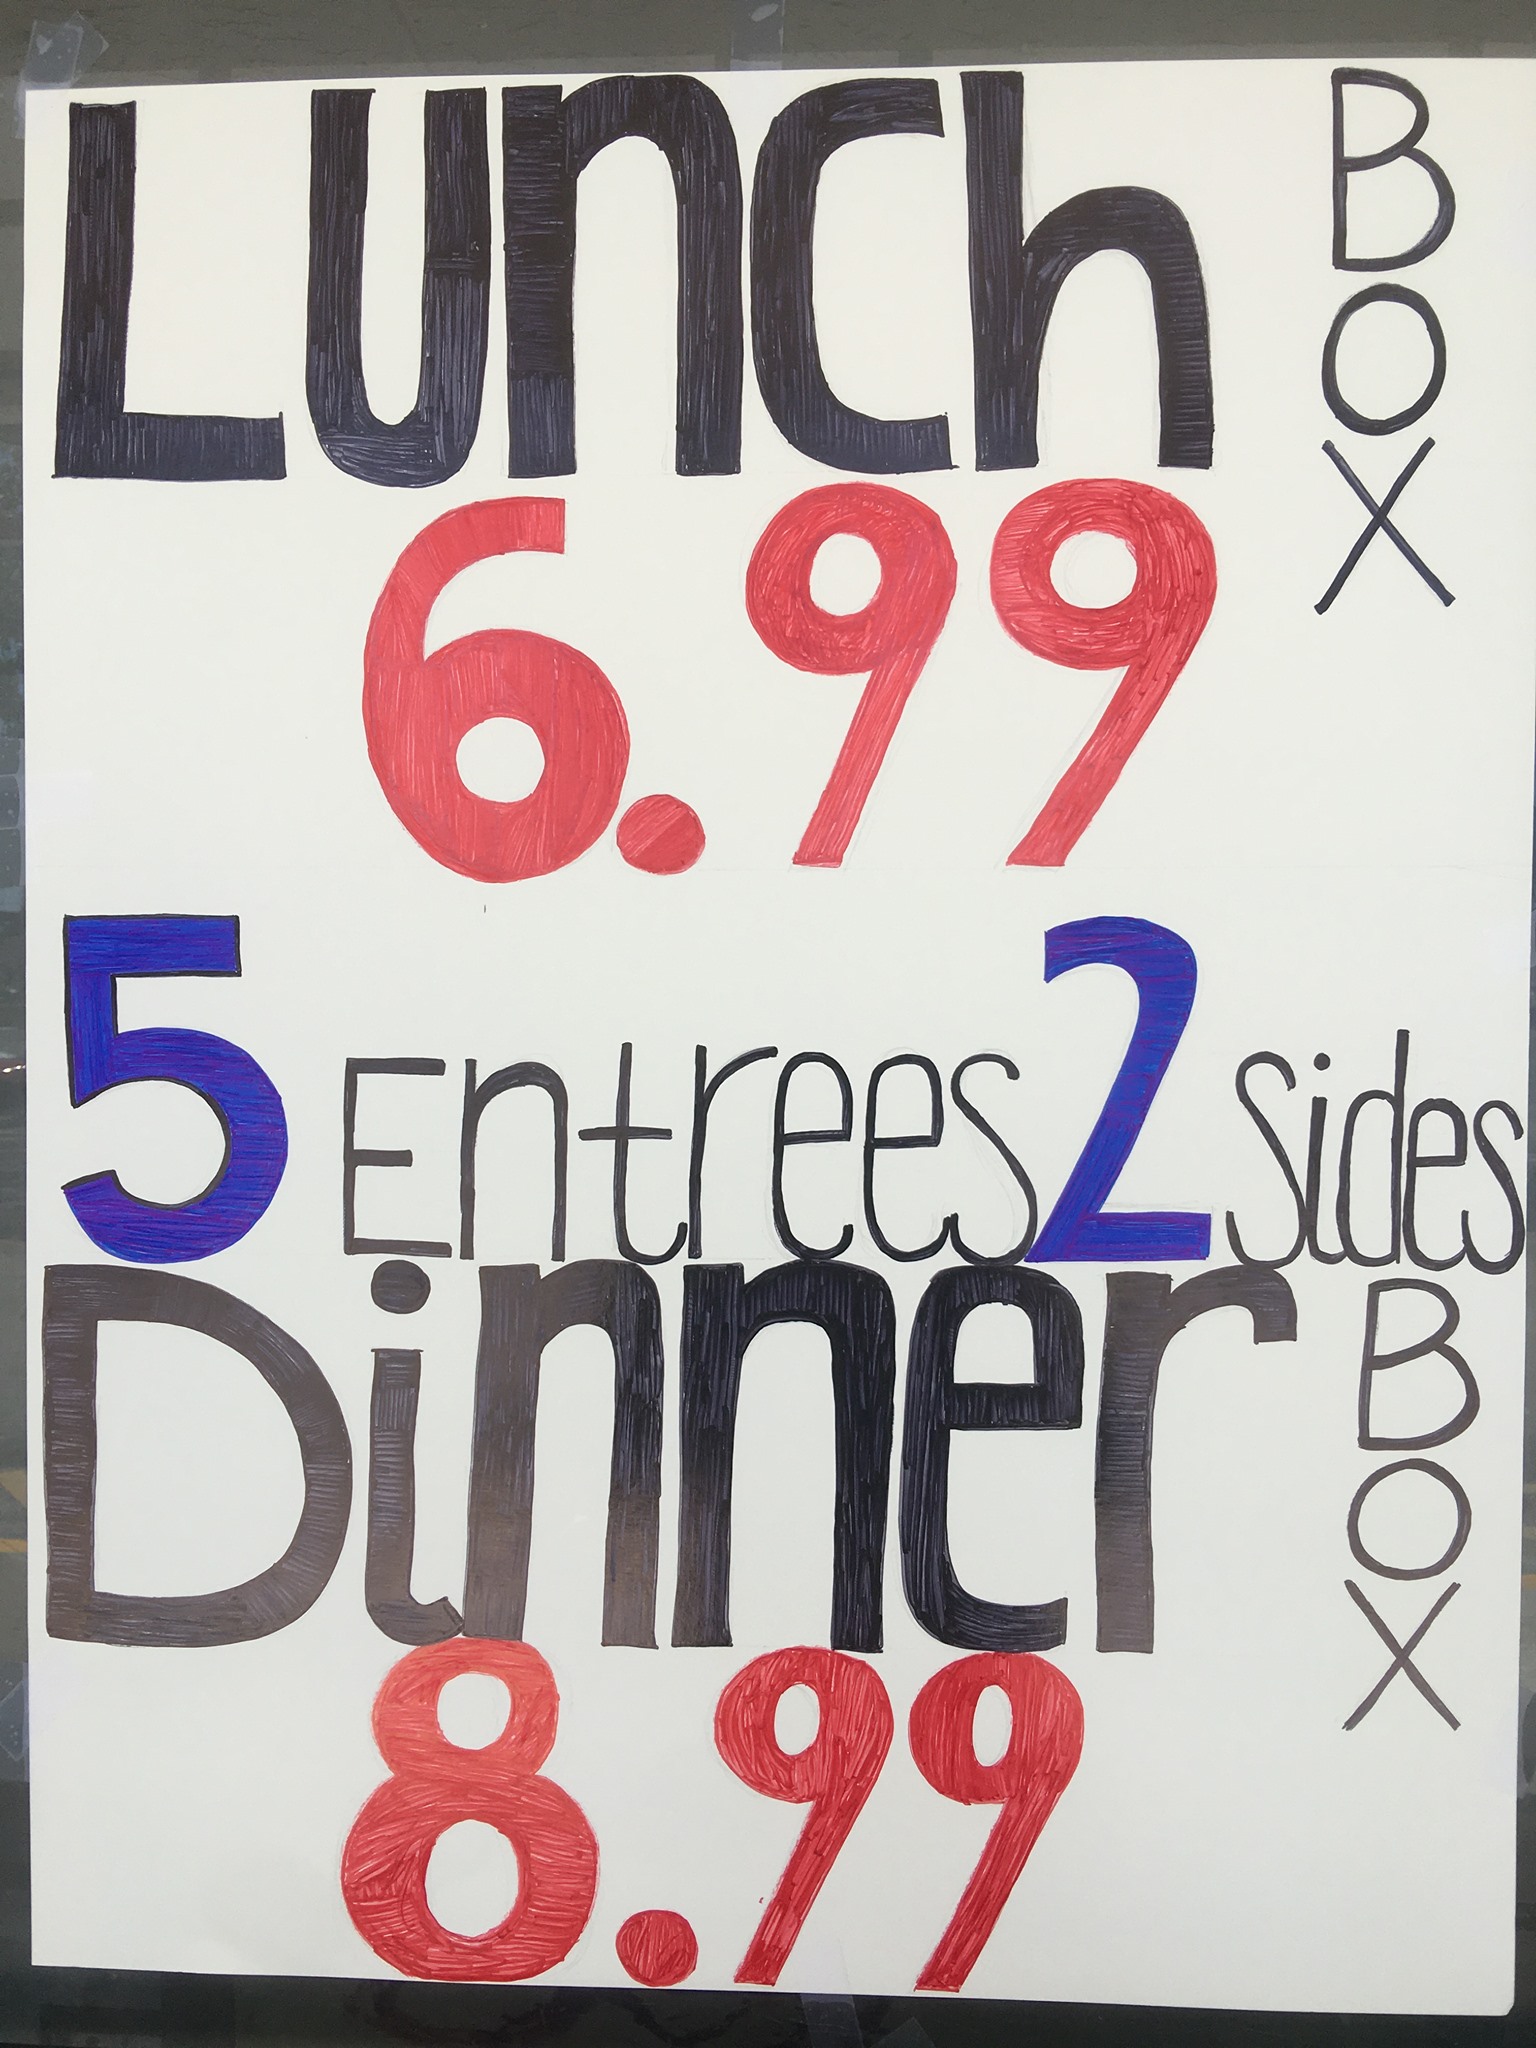 Lunch BOX
6.99
5 Entrees 2 Sides
Dinner BOX
8.99